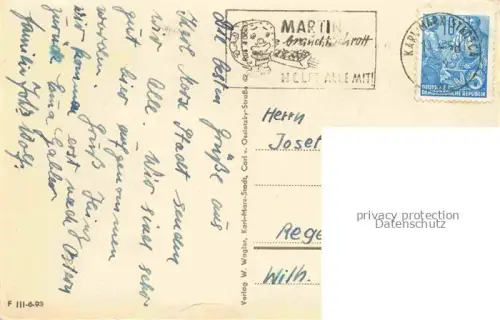 Die besten Grüße aus
Karl-Marx-Stadt senden
wir Alle. Wir sind sehr
gut hier aufgenommen
worden. Gruß Heinz
wir kommen erst nach Ostern
zurück.
Familie
MARTIN
braucht Schrott
HELFT ALLE MIT!
KARL-MARX-STADT
DEUTSCHE
DEMOKRATISCHE REPUBLIK
Herrn
Josef
Rege
Wilh.
Verlag W. Wagler, Karl-Marx-Stadt, Carl v. Ossietzky-Straße
F III-6-93
privacy protection
Datenschutz